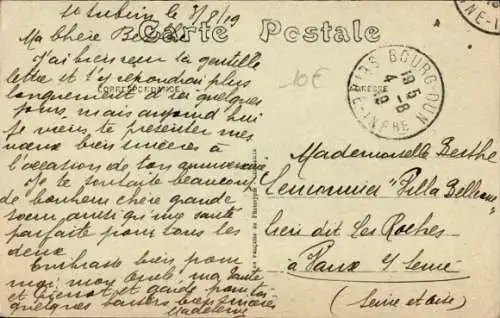 St Aubin le 3/8/19
Carte Postale
Ma chère Berthe
J'ai bien reçu ta gentille
lettre et t'y répondrai plus
CORRESPONDANCE
longuement d'ici quelques
jours, mais aujourd'hui
je viens te présenter mes
vœux bien sincères à
l'occasion de ton anniversaire
Je te souhaite beaucoup
de bonheur chère grande
sœur ainsi qu'une santé
parfaite pour tous les
deux.
Embrasse bien pour
moi mon oncle, ma tante
et Pierrot et garde pour toi
quelques baisers bien sincères
Madeleine
10€
BOURG-DUN
15
4-8
19
ADRESSE
Mademoiselle Berthe
Lemonnier "Villa
lieu dit Les Roches
à Vaux s/ Seine
(Seine et Oise)